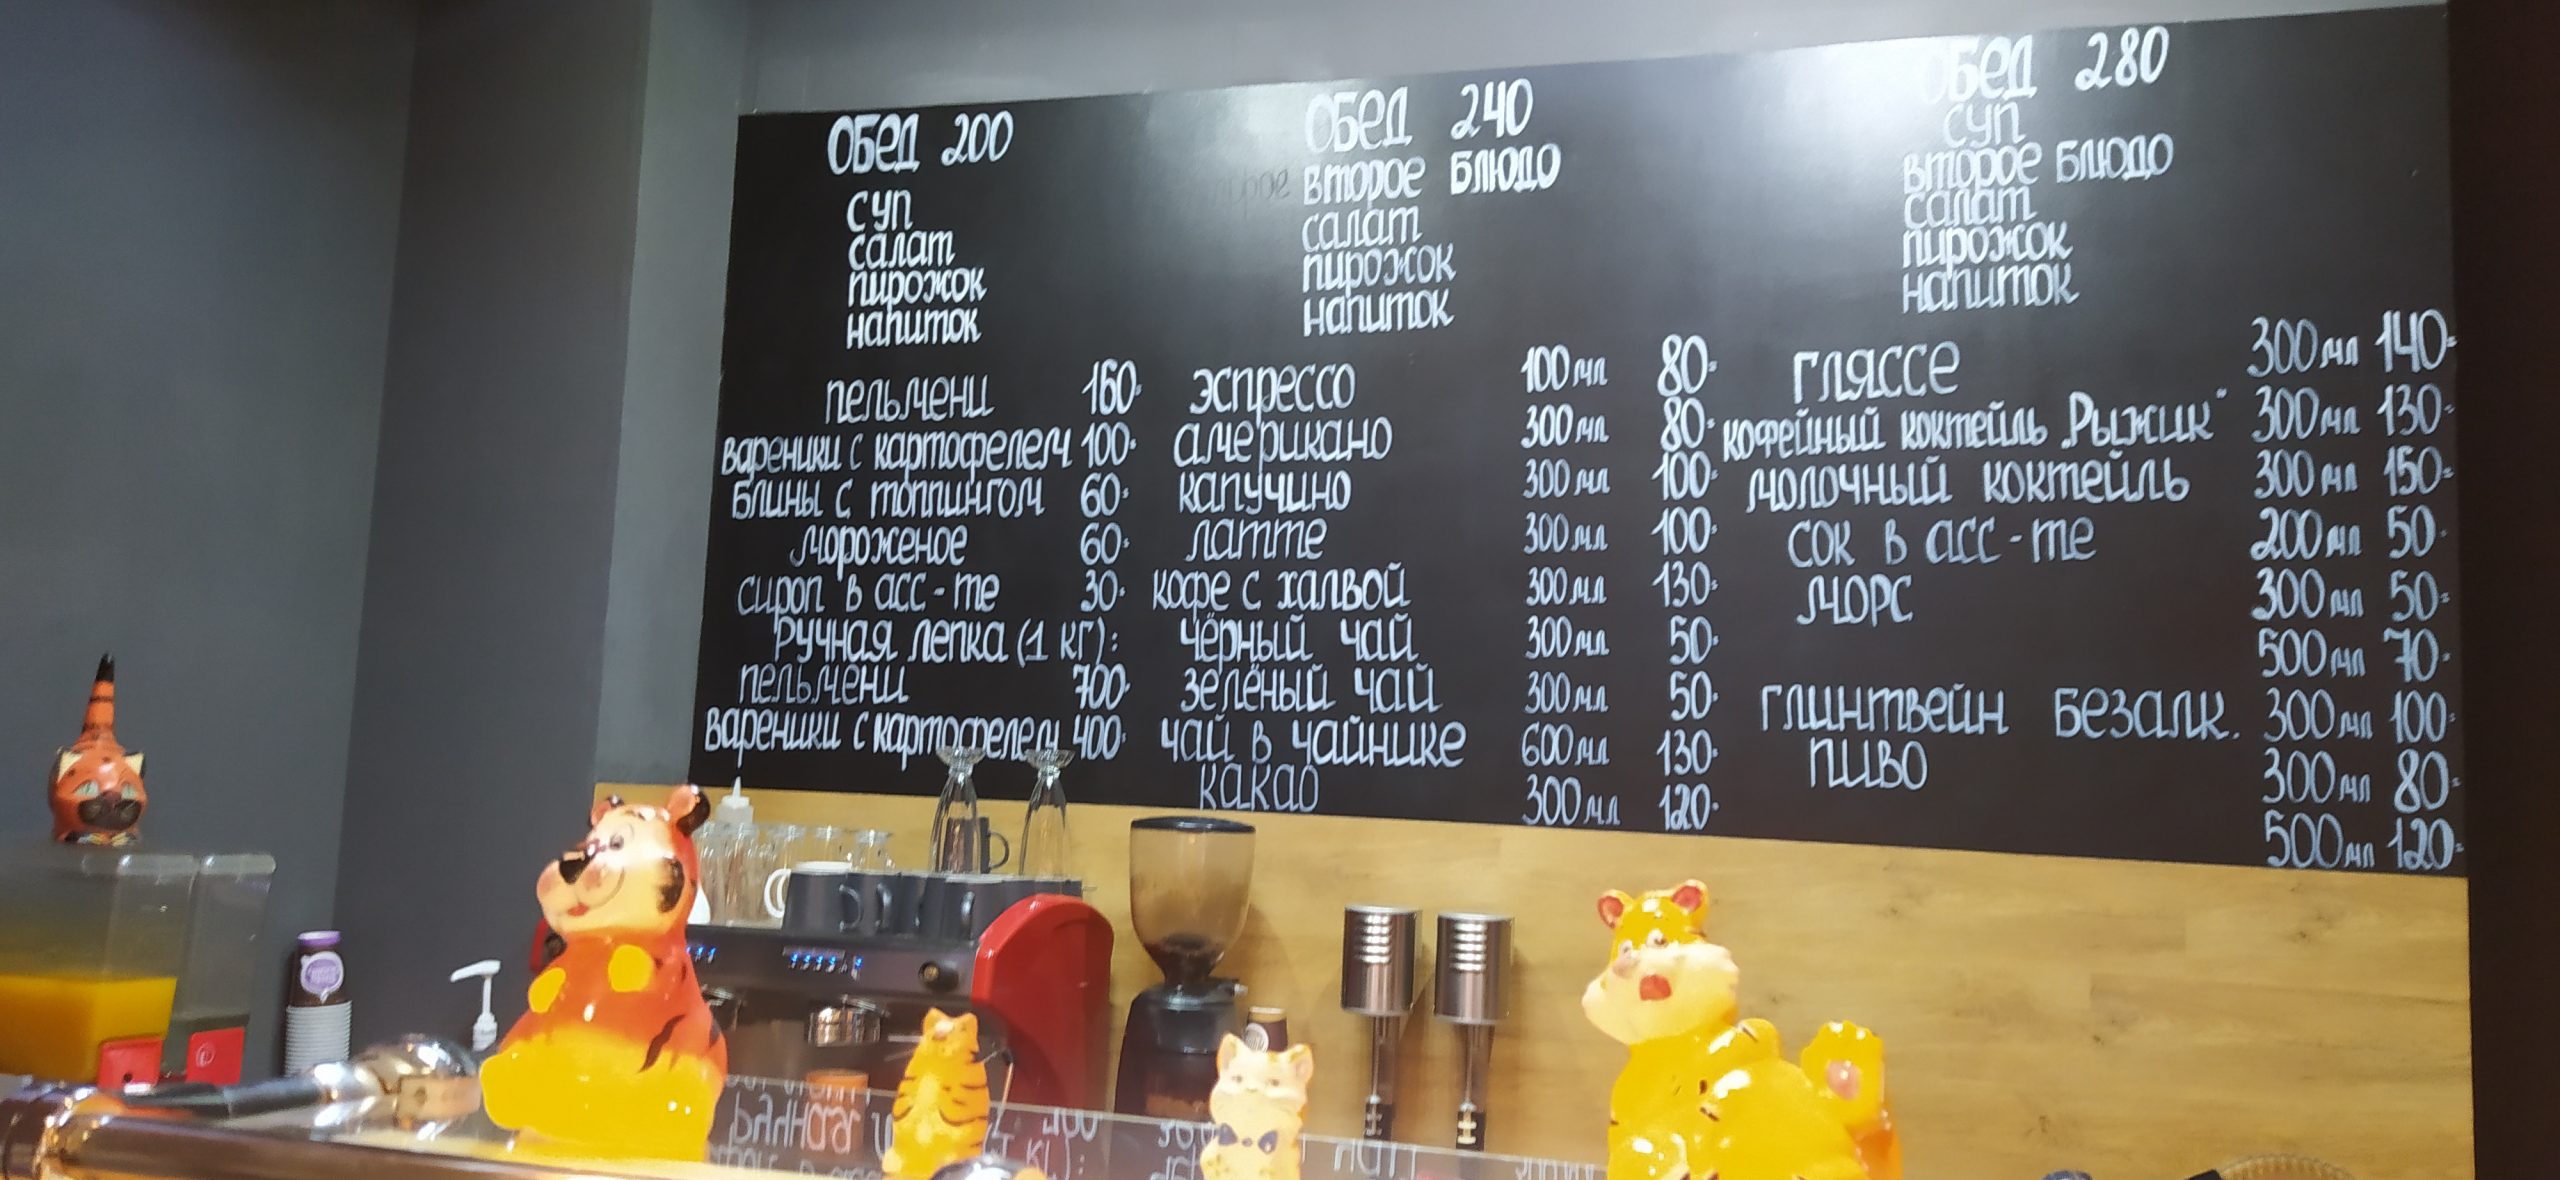 ОБЕД 200
суп
салат
пирожок
напиток
пельмени 160=
вареники с картофелем 100=
блины с топпингом 60=
мороженое 60=
сироп в асс-те 30=
Ручная лепка (1 кг):
пельмени 700=
вареники с картофелем 400=
ОБЕД 240
второе блюдо
салат
пирожок
напиток
эспрессо 100 мл 80=
американо 300 мл 80=
капучино 300 мл 100=
латте 300 мл 100=
кофе с халвой 300 мл 130=
чёрный чай 300 мл 50=
зелёный чай 300 мл 50=
чай в чайнике 600 мл 130=
какао 300 мл 120=
ОБЕД 280
суп
второе блюдо
салат
пирожок
напиток
гляссе 300 мл 140=
кофейный коктейль „Рыжик" 300 мл 130=
молочный коктейль 300 мл 150=
сок в асс-те 200 мл 50=
морс 300 мл 50=
500 мл 70=
глинтвейн безалк. 300 мл 100=
пиво 300 мл 80=
500 мл 120=